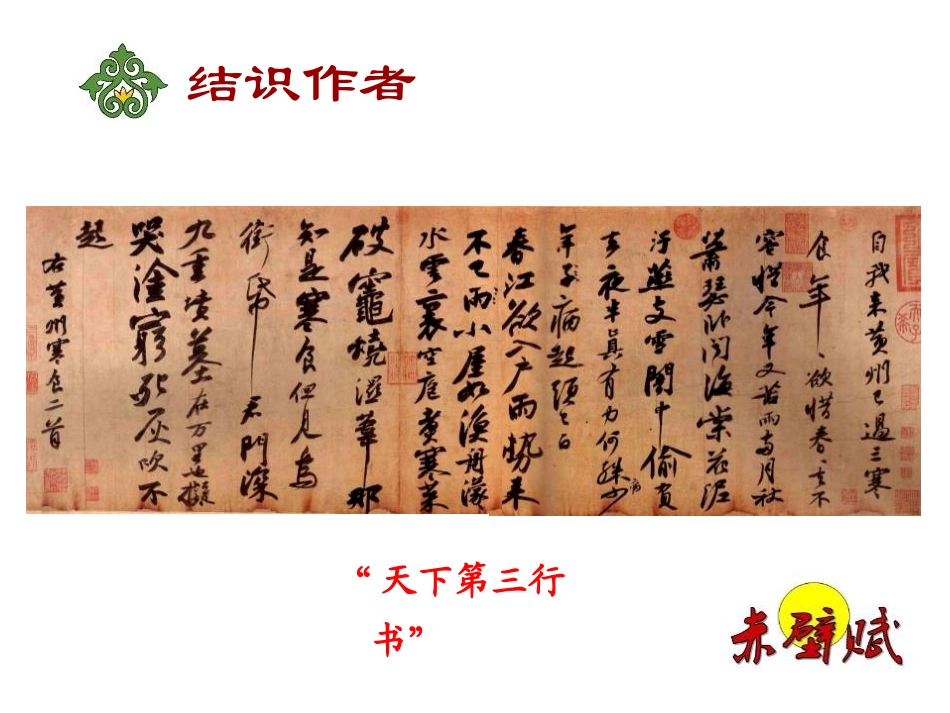 结识作者
自我来黄州已過三寒
食年、欲惜春、去不
容惜今年又苦雨兩月秋
蕭瑟卧聞海棠花泥
汙燕支雪闇中偷負
去夜半真有力何殊少
病
年子病起頭已白
春江欲入户雨勢来
不已雨小屋如漁舟濛
水雲裏空庖煮寒菜
破竈燒濕葦那
知是寒食但見烏
銜帋君門深
九重墳墓在万里也擬
哭塗窮死灰吹不
起
右黄州寒食二首
“天下第三行
书”
赤壁赋